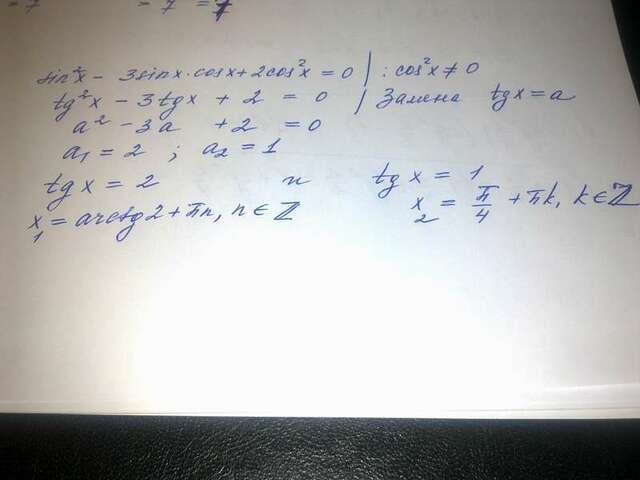 = 7 = 7 = 7
sin²x - 3sinx·cosx + 2cos²x = 0 | : cos²x ≠ 0
tg²x - 3tgx + 2 = 0 | Замена tgx = a
a² - 3a + 2 = 0
a₁ = 2 ; a₂ = 1
tgx = 2 и tgx = 1
x₁ = arctg2 + πn, n ∈ ℤ x₂ = π/4 + πk, k ∈ ℤ